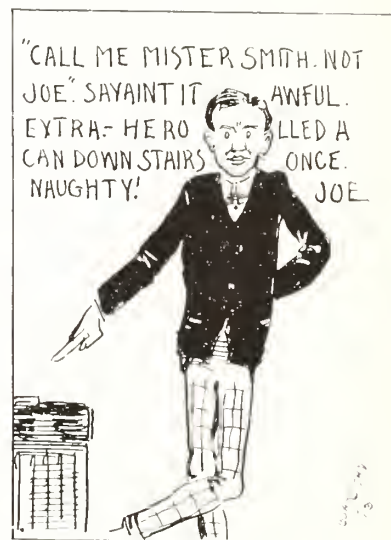 "CALL ME MISTER SMITH. NOT
JOE". SAYAINT IT AWFUL.
EXTRA:- HE RO LLED A
CAN DOWN STAIRS ONCE.
NAUGHTY! JOE